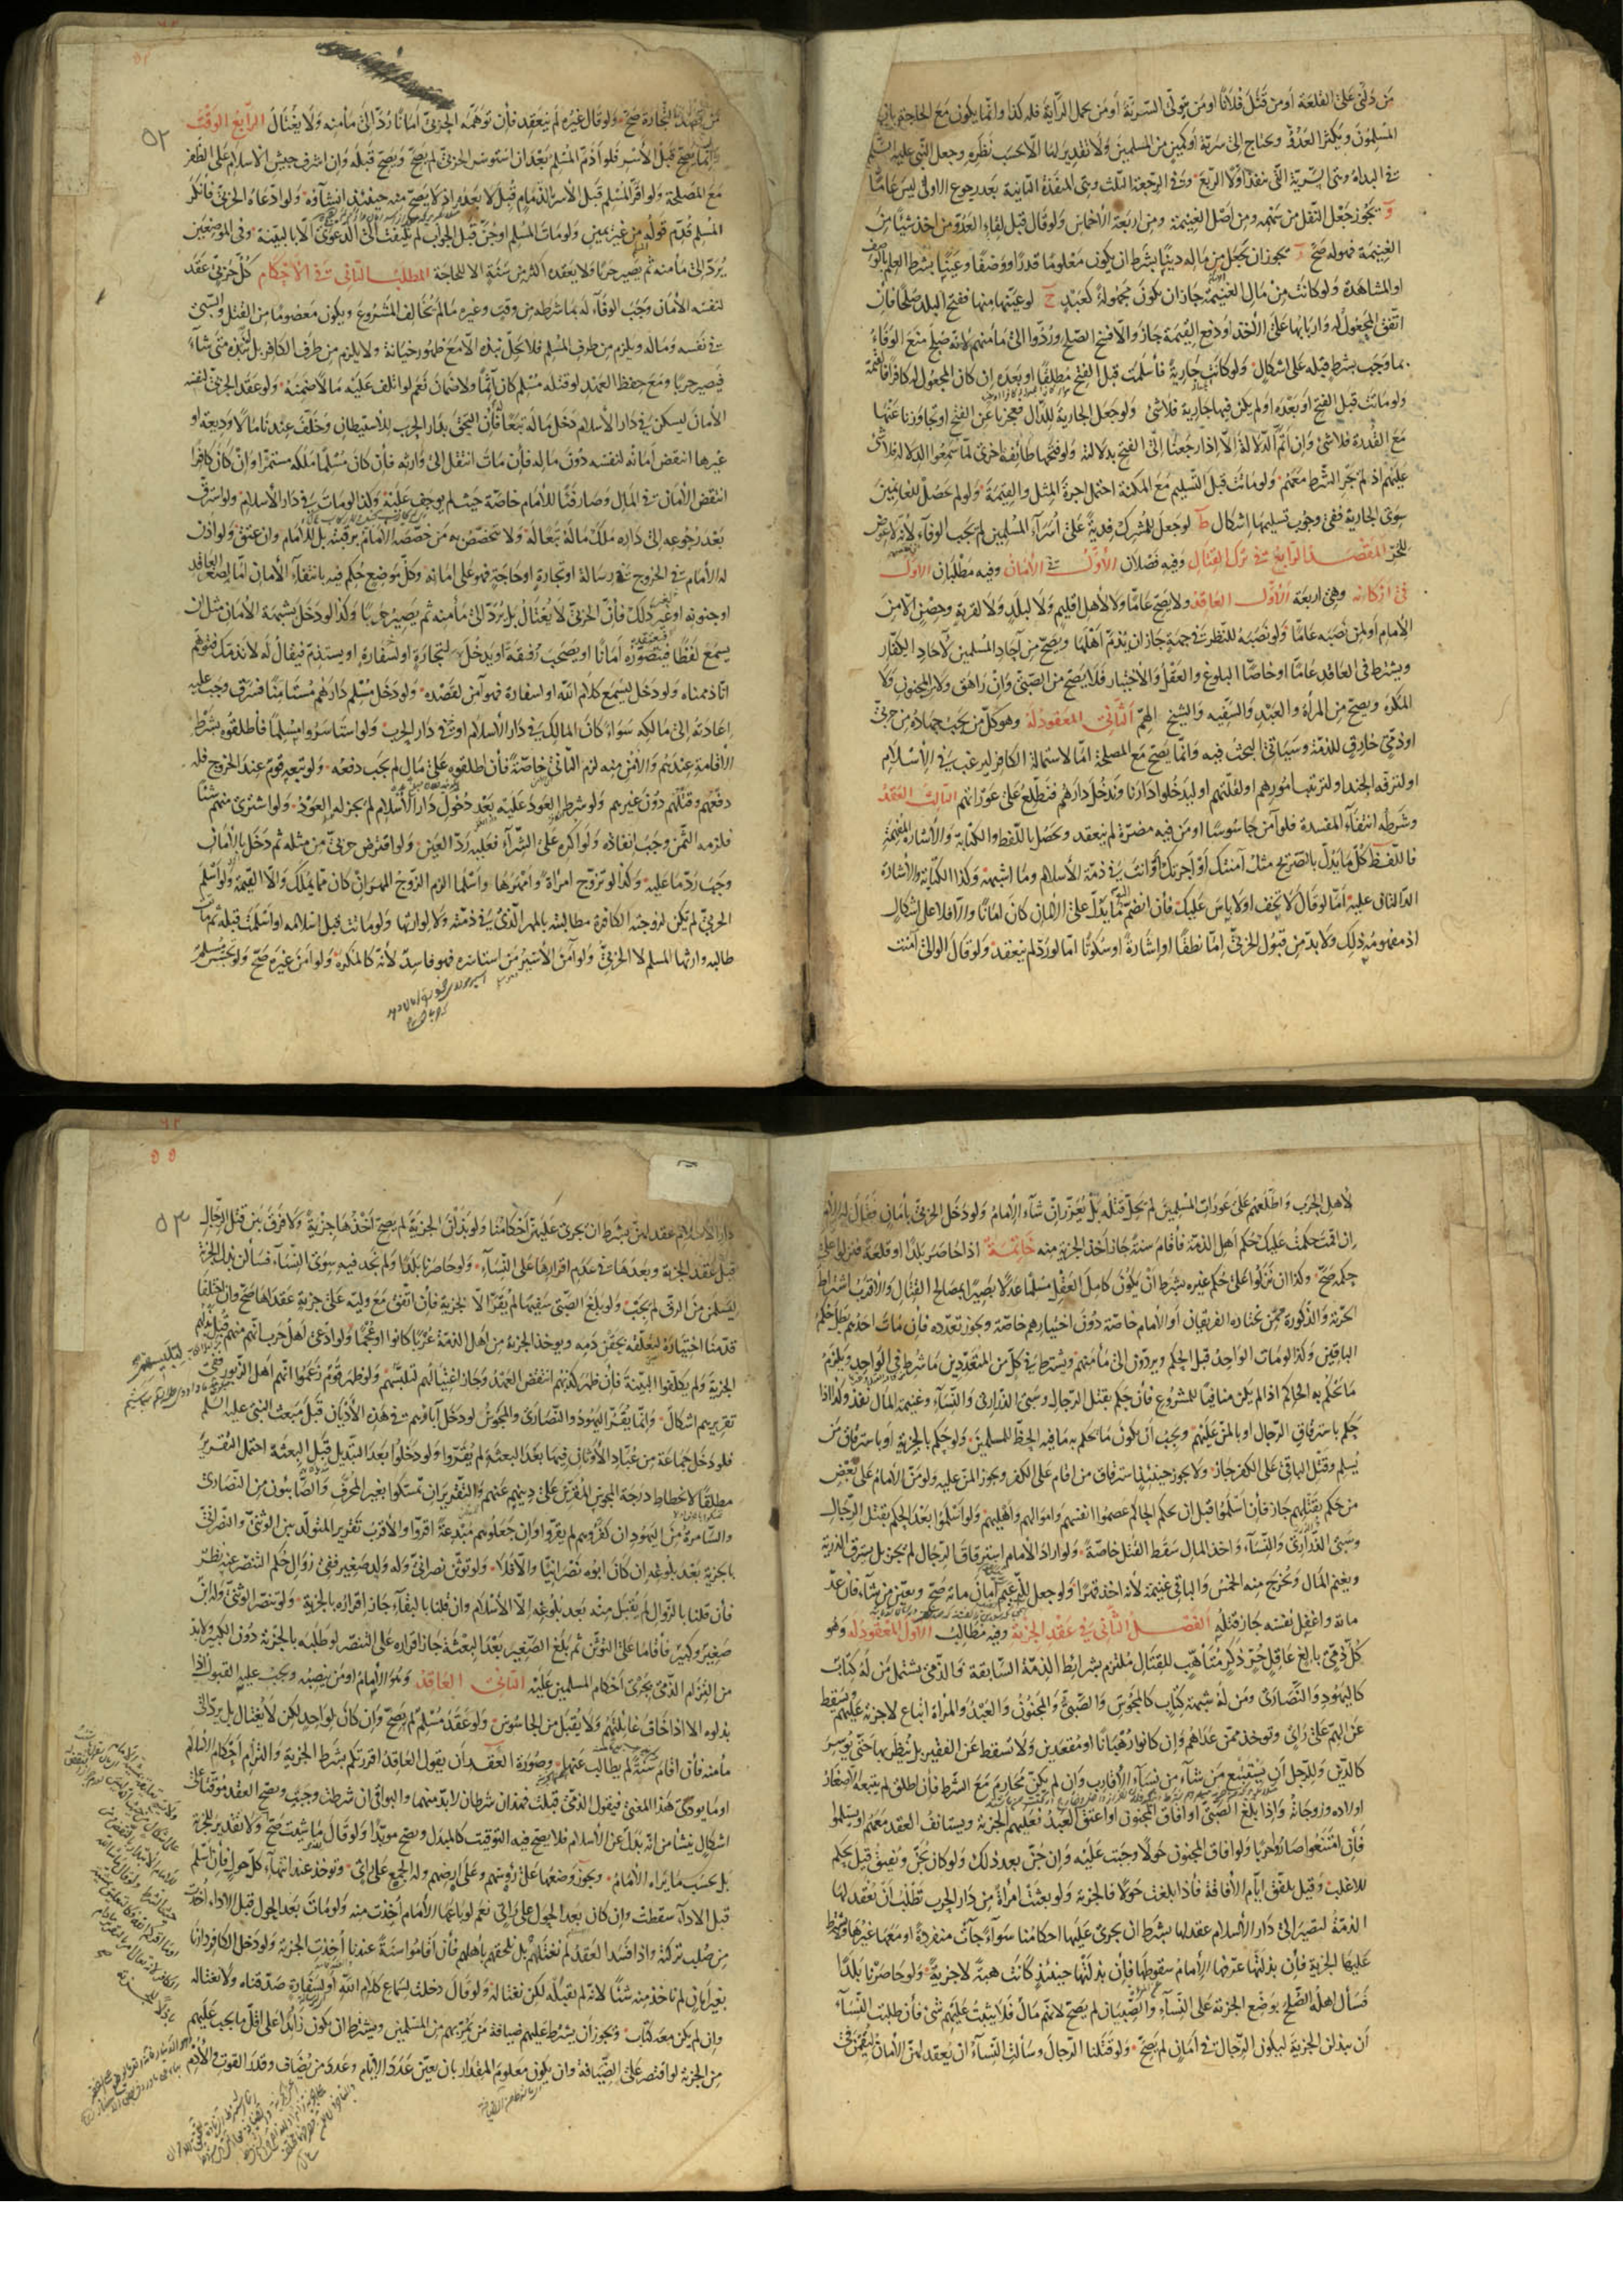 من دلنى على القلعة او من قتل فلانا او من يتولى السرية او من يحمل الراية فله كذا وانما يكون مع الحاجة بان
المسلمون ويكثر العدو ويحتاج الى سرية او كمين من المسلمين ولا تقدير لها الا بحسب نظره وجعل النبى عليه السلم
فى البداءة وهى السرية التى ينفذها اولا الربع وفى الرجعة الثلث وهى المنفذة الثانية بعد رجوع الاولى ليس عاما
يجوز جعل النفل من سهمه ومن اصل الغنيمة ومن اربعة الأخماس ولو قال قبل لقاء العدو من اخذ شيئا من
الغنيمة فهو له صح يجوز ان يجعل من ماله دينا بشرط ان يكون معلوما قدرا ووصفا وعينا بشرط العلم
او المشاهدة ولو كانت من مال الغنيمة جاز ان يكون مجهولة كعبد لو عينها منها ففتح البلد صلحا فان
اتفق المجعول له واربابها على الأخذ او دفع القيمة جاز والا فسخ الصلح وردوا الى مأمنهم لانه صلح منع الوفاء
بما وجب بشرط قبله على اشكال ولو كانت جارية فأسلمت قبل الفتح مطلقا او بعده ان كان المجعول له كافرا فالقيمة
ولو ماتت قبل الفتح او بعده او لم يكن فيها جارية فلا شئ ولو جعل الجارية للدال فعجزنا عن الفتح او تجاوزنا عنها
مع القدرة فلا شئ وان اتم الدلالة الا اذا رجعنا الى الفتح بدلالته ولو فتحها طائفة اخرى لما سمعوا الدلالة فلا شئ
عليهم اذ لم يجر الشرط معهم ولو ماتت قبل التسليم مع المكنة احتمل اجرة المثل والقيمة ولو لم يحصل للغانمين
سوى الجارية ففى وجوب تسليمها اشكال ط لو جعل للمشرك فدية على اسراء المسلمين لم يجب الوفاء لأنه لا عوض
للحر المقصد الرابع فى ترك القتال وفيه فصلان الأول فى الأمان وفيه مطلبان الأول
فى اركانه وهى اربعة الأول العاقد ولا يصح عاما ولا لأهل اقليم ولا لبلد ولا لقرية وحصن الا من
الإمام او لمن نصبه عاما ولو نصبه للنظر فى جهة جاز ان يذم اهلها ويصح من آحاد المسلمين لآحاد الكفار
ويشترط فى العاقد عاما او خاصا البلوغ والعقل والاختيار فلا يصح من الصبى وان راهق ولا من المجنون ولا
المكره ويصح من المرأة والعبد والسفيه والشيخ الهم الثانى المعقود له وهو كل من يجب جهاده من حربى
او ذمى خارق للذمة وسيأتى البحث فيه وانما يصح مع المصلحة اما لاستمالة الكافر ليرغب فى الإسلام
او لترفه الجند او لترتيب امورهم او لقلتهم او ليدخلوا دارنا وندخل دارهم فنطلع على عوراتهم الثالث العقد
وشرطه انتفاء المفسدة فلو آمن جاسوسا او من فيه مضرة لم ينعقد ويحصل باللفظ والكتابة والأشارة المفهمة
فاللفظ كل ما يدل بالصريح مثل آمنتك او اجرتك او انت فى ذمة الأسلام وما اشبهه وكذا الكتابة والأشارة
الدالتان عليه اما لو قال لا تخف او لا بأس عليك فأن انضم ما يدل على الأمان كان امانا والا فلا على اشكال
اذ مفهومه ذلك ولا بد من قبول الحربى اما نطقا او اشارة او سكوتا اما لو رد لم ينعقد ولو قال الوالى آمنت
٥٢
من قصد التجارة صح ولو قال غيره لم ينعقد فأن توهمه الحربى امانا رد الى مأمنه ولا يغتال الرابع الوقت
وانما يصح قبل الأسر فلو اذم المسلم بعد ان استؤسر الحربى لم يصح ويصح قبله وان اشرف جيش الأسلام على الظفر
مع المصلحة ولو اقر المسلم قبل الأسر بالذمام قبل لا بعده اذ لا يصح منه حينئذ انشاؤه ولو ادعاه الحربى فانكر
المسلم قدم قوله من غير يمين ولو مات المسلم او جن قبل الجواب لم يلتفت الى الدعوى الا بالبينة وفى الموضعين
يرد الى مأمنه ثم يصير حربا ولا يعقده اكثر من سنة الا للحاجة المطلب الثانى فى الأحكام كل حربى عقد
لنفسه الأمان وجب الوفاء له بما شرطه من وقت وغيره ما لم يخالف المشروع ويكون معصوما من القتل والسبى
فى نفسه وماله ويلزم من طرف المسلم فلا يحل نبذه الا مع ظهور خيانة ولا يلزم من طرف الكافر بل نبذه متى شاء
فيصير حربا ومع حفظ العهد لو قتله مسلم كان آثما ولا ضمان نعم لو اتلف عليه مالا ضمنه ولو عقد الحربى لنفسه
الأمان ليسكن فى دار الأسلام دخل ماله تبعا فأن التحق بدار الحرب للاستيطان وخلف عندنا مالا وديعة او
غيرها انتقض امانه لنفسه دون ماله فأن مات انتقل الى وارثه فأن كان مسلما ملكه مستمرا وان كان كافرا
انتقض الأمان فى المال وصار فيئا للأمام خاصة حيث لم يوجف عليه وكذا لو مات فى دار الأسلام ولو استرق
بعد رجوعه الى داره ملك ماله تبعا له ولا يتخصص به من خصصه الأمام برقبته بل للأمام وان عتق ولو اذن
له الأمام فى الخروج فى رسالة او تجارة او حاجة فهو على امانه وكل موضع حكم فيه بانتفاء الأمان اما لصغر العاقد
او جنونه او غير ذلك فأن الحربى لا يغتال بل يرد الى مأمنه ثم يصير حربا وكذا لو دخل بشبهة الأمان مثل ان
يسمع لفظا فيتصوره امانا او يصحب رفقة او يدخل لتجارة او لسفارة او يستذم فيقال له لا نذمك فتوهم
انا ذممناه ولو دخل ليسمع كلام الله او لسفارة فهو آمن لقصده ولو دخل مسلم دارهم مستأمنا فسرق وجب عليه
اعادته الى مالكه سواء كان المالك فى دار الأسلام او فى دار الحرب ولو استأسروا مسلما فأطلقوه بشرط
الأقامة عندهم والأمن منه لزم الثانى خاصة فأن اطلقوه على مال لم يجب دفعه ولو تبعه قوم عند الخروج فله
دفعهم وقتلهم دون غيرهم ولو شرط العود عليه بعد دخول دار الأسلام لم يجز له العود ولو اشترى منهم شئا
فلزمه الثمن وجب انفاذه ولو اكره على الشراء فعليه رد العين ولو اقترض حربى من مثله ثم دخل بالأمان
وجب رد ما عليه وكذا لو تزوج امرأة وامهرها واسلما الزم الزوج المهر ان كان مما يملك والا القيمة ولو اسلم
الحربى لم يكن لزوجته الكافرة مطالبته بالمهر الذى فى ذمته ولا لوارثها ولو ماتت قبل اسلامه او اسلمت قبله ثم ماتت
طالبه وارثها المسلم لا الحربى ولو آمن الأسير من استأسره فهو فاسد لأنه كالمكره ولو امن غيره صح ولو تجسس مسلم
لأهل الحرب واطلعهم على عورات المسلمين لم يحل قتله بل يعزر ان شاء الإمام ولو دخل الحربى بأمان فقال له الإمام
ان اقمت حكمت عليك حكم اهل الذمة فأقام سنة جاز اخذ الجزية منه خاتمة اذا حاصر بلدا او قلعة فنزلوا على
حكمه صح وكذا ان نزلوا على حكم غيره بشرط ان يكون كامل العقل مسلما عدلا بصيرا بمصالح القتال والأقرب اشتراط
الحرية والذكورة ممن يختاره الفريقان او الأمام خاصة دون اختيارهم خاصة ويجوز تعدده فأن مات احدهم بطل حكم
الباقين وكذا لو مات الواحد قبل الحكم ويردون الى مأمنهم ويشترط فى كل من المتعددين ما شرط فى الواحد ويلزم
ما يحكم به الحاكم اذا لم يكن منافيا للمشروع فأن حكم بقتل الرجال وسبى الذرارى والنساء وغنيمة المال نفذ وكذا اذا
حكم باسترقاق الرجال او بالمن عليهم ويجب ان يكون ما يحكم به ما فيه الحظ للمسلمين ولو حكم بالجزية او باسترقاق من
يسلم وقتل الباقى على الكفر جاز ولا يجوز حينئذ استرقاق من اقام على الكفر ويجوز المن عليه ولو من الأمام على بعض
من حكم بقتلهم جاز فأن اسلموا قبل ان يحكم الحاكم عصموا انفسهم واموالهم واهليهم ولو اسلموا بعد الحكم بقتل الرجال
وسبى الذرارى والنساء واخذ المال سقط القتل خاصة ولو اراد الأمام استرقاق الرجال لم يجز بل يسترق الذرية
ويغنم المال ويخرج منه الخمس والباقى غنيمة لأنه اخذ قهرا ولو جعل للزعيم امان مائة صح ويعين من يشاء فان عد
مائة واغفل نفسه جاز قتله الفصل الثانى فى عقد الجزية وفيه مطالب الأول المعقود له وهو
كل ذمى بالغ عاقل حر ذكر متأهب للقتال ملتزم بشرائط الذمة السابقة والذمى يشتمل من له كتاب
كاليهود والنصارى ومن له شبهة كتاب كالمجوس والصبى والمجنون والعبد والمرأة اتباع لا جزية عليهم ويسقط
عن الهم على رأى وتوخذ ممن عداهم وان كانوا رهبانا او مقعدين ولا تسقط عن الفقير بل ينظر بها حتى يوسر
كالدين وللرجل ان يستتبع من شاء من نساء الأقارب وان لم يكن محارم مع الشرط فأن اطلق لم يتبعه الا صغار
اولاده وزوجاته واذا بلغ الصبى او افاق المجنون او اعتق العبد فعليهم الجزية ويستأنف العقد معهم او يسلموا
فأن امتنعوا صاروا حربا ولو افاق المجنون حولا وجبت عليه وان جن بعد ذلك ولو كان يجن ويفيق قيل يحكم
للاغلب وقيل يلفق ايام الأفاقة فأذا بلغت حولا فالجزية ولو بعثت امرأة من دار الحرب تطلب ان تعقد لها
الذمة لتصير الى دار الأسلام عقد لها بشرط ان يجرى عليها احكامنا سواء جاءت منفردة او معها غيرها ولا يشترط
عليها الجزية فإن بذلتها عرفها الإمام سقوطها فإن بذلتها حينئذ كانت هبة لا جزية ولو حاصرنا بلدا
فسأل اهله الصلح بوضع الجزية على النساء والصبيان لم يصح لانهم مال فلا يثبت عليهم شئ فأن طلبت النساء
ان يبذلن الجزية ليكون الرجال فى امان لم يصح ولو قتلنا الرجال وسألت النساء ان يعقد لهن الأمان ليقمن فى
٥٣
دار الإسلام عقد لهن بشرط ان يجرى عليهن احكامنا ولو بذلن الجزية لم يصح اخذها جزية ولا فرق بين قتل الرجال
قبل عقد الجزية وبعدها فى عدم اقرارها على النساء ولو حاصرنا بلدا ولم نجد فيه سوى النساء فسألن بذل الجزية
ليسلمن من الرق لم يجب ولو بلغ الصبى سفيها لم يقر الا بجزية فأن اتفق مع وليه على جزية عقداها صح وان اختلفا
قدمنا اختياره لتعلقه بحقن دمه ويوخذ الجزية من اهل الذمة عربا كانوا او عجما ولو ادعى اهل حرب انهم منهم قبل بذلهم
الجزية ولم يكلفوا البينة فأن ظهر كذبهم انتقض العهد وجاز اغتيالهم لتلبيسهم ولو ظهر قوم زعموا انهم اهل الزبور ففى
تقريرهم اشكال وانما يقر اليهود والنصارى والمجوس لو دخل آباؤهم فى هذه الأديان قبل مبعث النبى عليه السلم
فلو دخل جماعة من عباد الأوثان فيها بعد البعثة لم يقروا ولو دخلوا بعد التبديل قبل البعثة احتمل التقرير
مطلقا لانحطاط درجة المجوس المقرين على دينهم عنهم والتقرير ان تمسكوا بغير المحرف والصابئون من النصارى
والسامرة من اليهود ان كفروهم لم يقروا وان جعلوهم مبتدعة اقروا والأقرب تقرير المتولد بين الوثنى والنصرانى
بالجزية بعد بلوغه ان كان ابوه نصرانيا والا فلا ولو توثن نصرانى وله ولد صغير ففى زوال حكم التنصر عنه نظر
فأن قلنا بالزوال لم يقبل منه بعد بلوغه الا الأسلام وان قلنا بالبقاء جاز اقراره بالجزية ولو تنصر الوثنى وله ابن
صغير وكبير فأقاما على التوثن ثم بلغ الصغير بعد البعثة جاز اقراره على التنصر لو طلبه بالجزية دون الكبير ولا بد
من التزام الذمى بجرى احكام المسلمين عليه الثانى العاقد وهو الإمام او من ينصبه ويجب عليه القبول اذا
بذلوه الا اذا خاف غائلتهم ولا يقبل من الجاسوس ولو عقد مسلم لم يصح وان كان لواحد لكن لا يغتال بل يرد الى
مأمنه فأن اقام سنة لم يطالب عنها وصورة العقد ان يقول العاقد اقررتكم بشرط الجزية والتزام احكام الأسلام
او ما يودى هذا المعنى فيقول الذمى قبلت فهذان شرطان لا بد منهما والبواقى ان شرطت وجبت ويصح العقد موقتا على
اشكال ينشأ من انه بدل عن الأسلام فلا يصح فيه التوقيت كالمبدل ويصح مؤبدا ولو قال ما شئت صح ولا تقدير للجزية
بل بحسب ما يراه الأمام ويجوز وضعها على رؤسهم وعلى ارضهم وله الجمع على رأى وتوخذ عند انتهاء كل حول فأن اسلم
قبل الاداء سقطت وان كان بعد الحول على رأى نعم لو باعها الأمام أخذت منه ولو مات بعد الحول قبل الاداء اخذت
من صلب تركته واذا فسد العقد لم نغتلهم بل نلحقهم بأهلهم فأن اقاموا سنة عندنا أخذت الجزية ولو دخل الكافر دارنا
بغير امان لم نأخذ منه شئا لانه لم يقبله لكن نغتاله ولو قال دخلت لسماع كلام الله او لسفارة صدقناه ولا نغتاله
وان لم يكن معه كتاب ويجوز ان يشترط عليهم ضيافة من يمر بهم من المسلمين ويشترط ان يكون زائدا على اقل ما يجب عليهم
من الجزية لو اقتصر على الضيافة وان يكون معلوم المقدار بان يعين عدد الايام وعدد من يضاف وقدر القوت والأدم